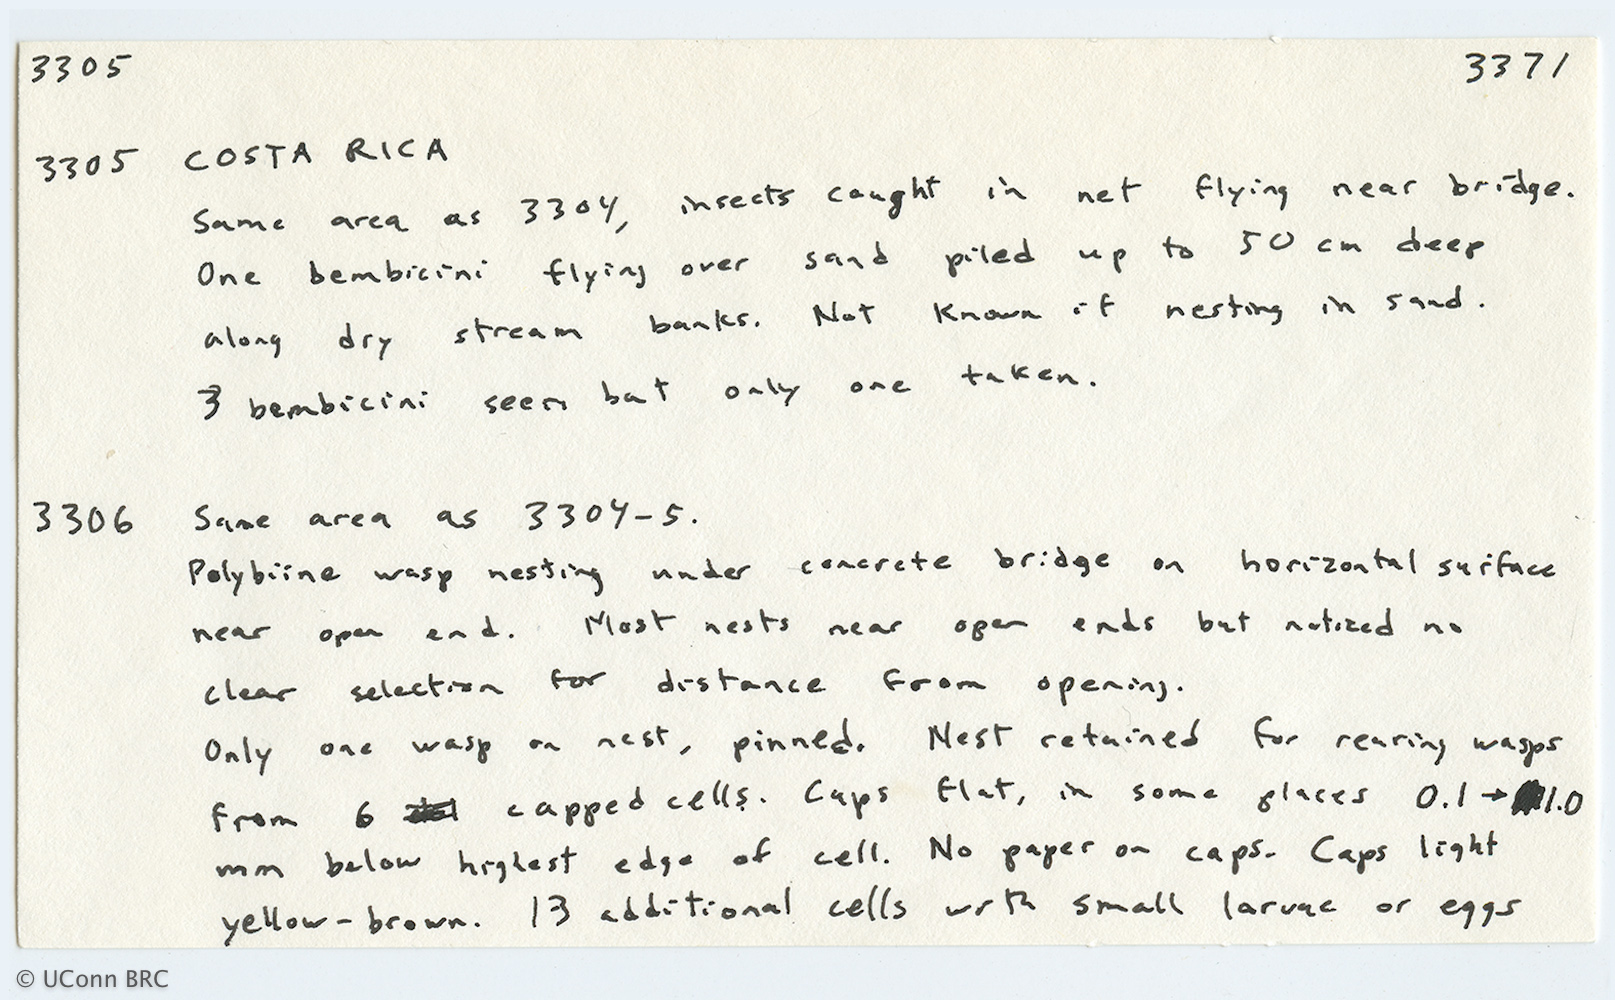 3305 3371
3305 COSTA RICA
Same area as 3304, insects caught in net flying near bridge.
One bembicini flying over sand piled up to 50 cm deep
along dry stream banks. Not known if nesting in sand.
3 bembicini seen but only one taken.
3306 Same area as 3304-5.
Polybiine wasp nesting under concrete bridge on horizontal surface
near open end. Most nests near open ends but noticed no
clear selection for distance from opening.
Only one wasp on nest, pinned. Nest retained for rearing wasps
from 6 capped cells. Caps flat, in some places 0.1→1.0
mm below highest edge of cell. No paper on caps. Caps light
yellow-brown. 13 additional cells with small larvae or eggs
© UConn BRC